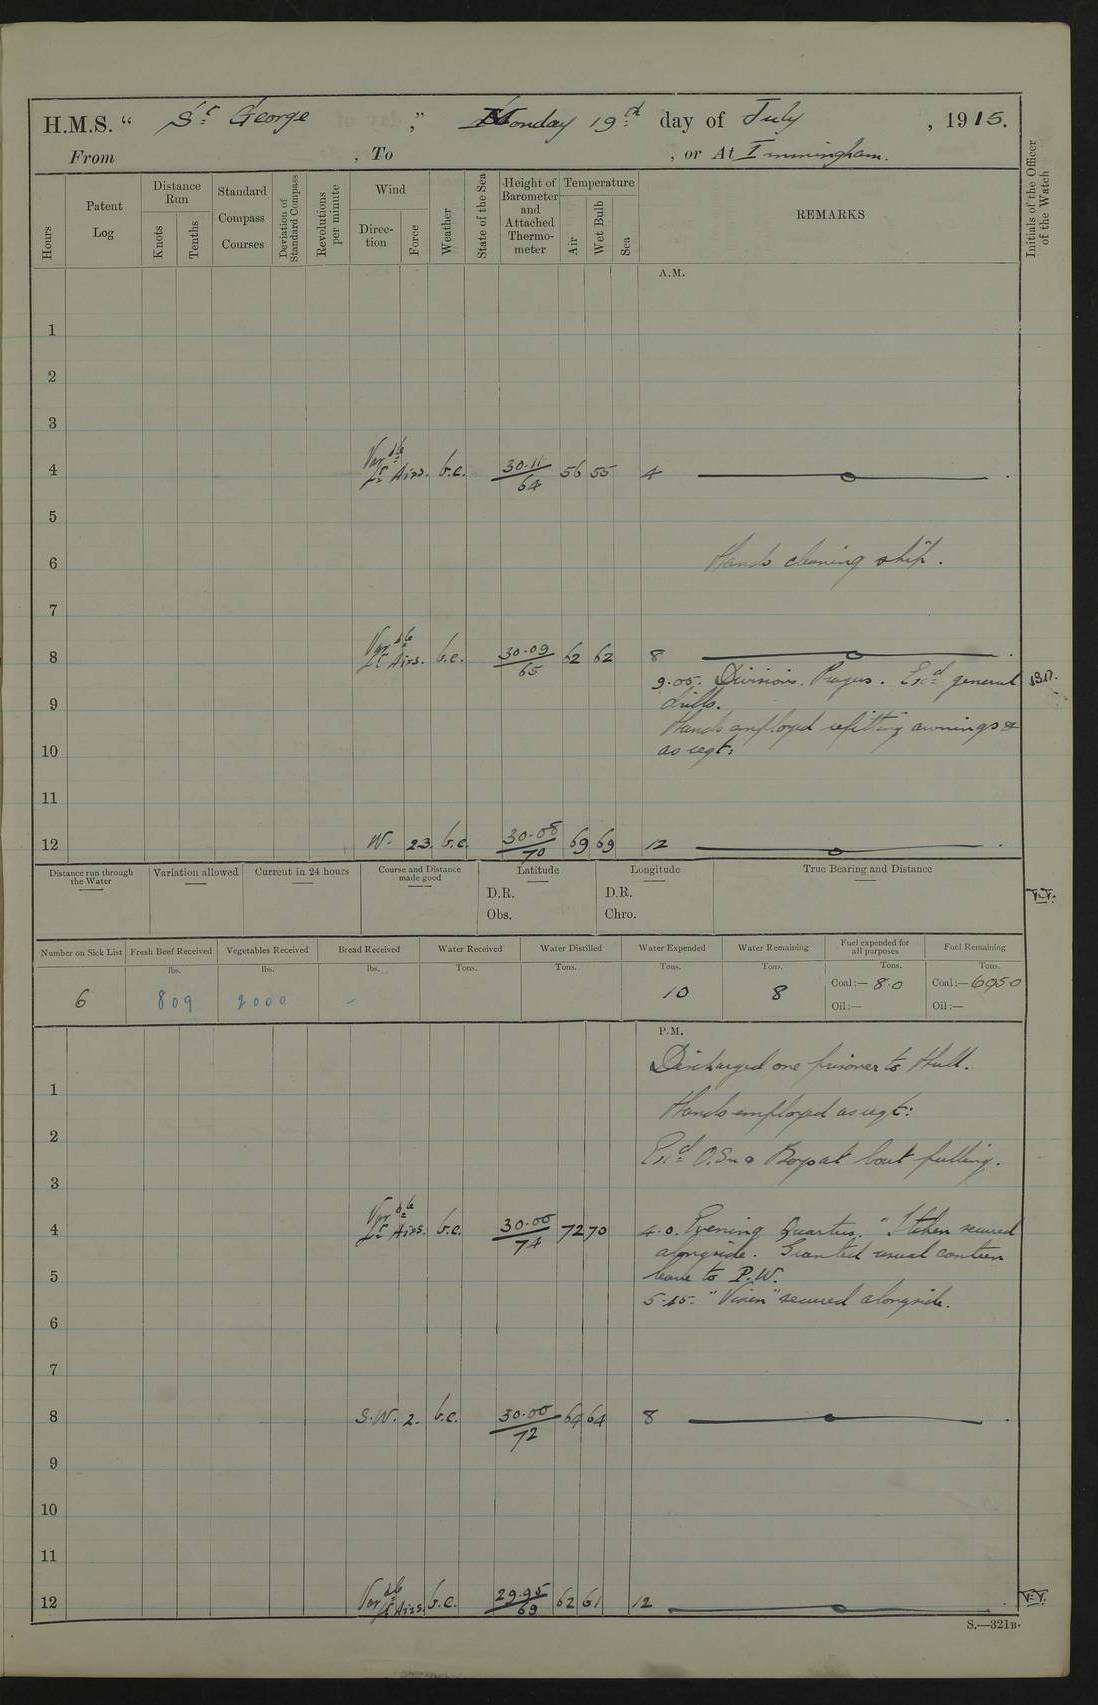 H.M.S. "St George," Monday 19th day of July, 1915.
From , To , or At Immingham.
Hours
Patent Log
Distance Run
Knots
Tenths
Standard Compass Courses
Deviation of Standard Compass
Revolutions per minute
Wind
Direction
Force
Weather
State of the Sea
Height of Barometer and Attached Thermometer
Temperature
Air
Wet Bulb
Sea
REMARKS
Initials of the Officer of the Watch
A.M.
1
2
3
4 Varble Lt Airs. b.c. 30.11/64 56 55 4
5
6 Hands cleaning ship.
7
8 Varble Lt Airs. b.c. 30.09/65 62 62 8
9.05. Divisions. Prayers. Exd general
9 drills.
Hands employed refitting awnings &
10 as reqt:
11
12 W. 23. b.c. 30.08/70 69 69 12
Distance run through the Water
Variation allowed
Current in 24 hours
Course and Distance made good
Latitude
D.R.
Obs.
Longitude
D.R.
Chro.
True Bearing and Distance
Number on Sick List
Fresh Beef Received
Vegetables Received
Bread Received
Water Received
Water Distilled
Water Expended
Water Remaining
Fuel expended for all purposes
Fuel Remaining
lbs. lbs. lbs. Tons. Tons. Tons. Tons. Tons. Tons.
6 809 2000 - 10 8 Coal:— 8.0 Coal:— 6050
Oil:— Oil:—
P.M.
Discharged one prisoner to Hull.
1
Hands employed as reqt:
2
Exd O.Sn & Boys at boat pulling.
3
4 Varble Lt Airs. b.c. 30.00/74 72 70 4.0. Evening Quarters. "Itchen secured
alongside. Granted usual canteen
5 leave to P.W.
5.45. "Vixen" secured alongside.
6
7
8 S.W. 2. b.c. 30.00/72 64 64 8
9
10
11
12 Varble Lt Airs. b.c. 29.95/69 62 61 12
S.—321B.